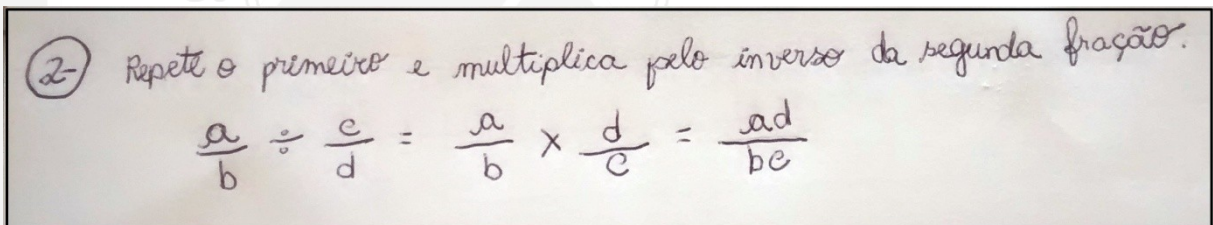 2- Repete o primeiro e multiplica pelo inverso da segunda fração.
a/b ÷ c/d = a/b × d/c = ad/bc